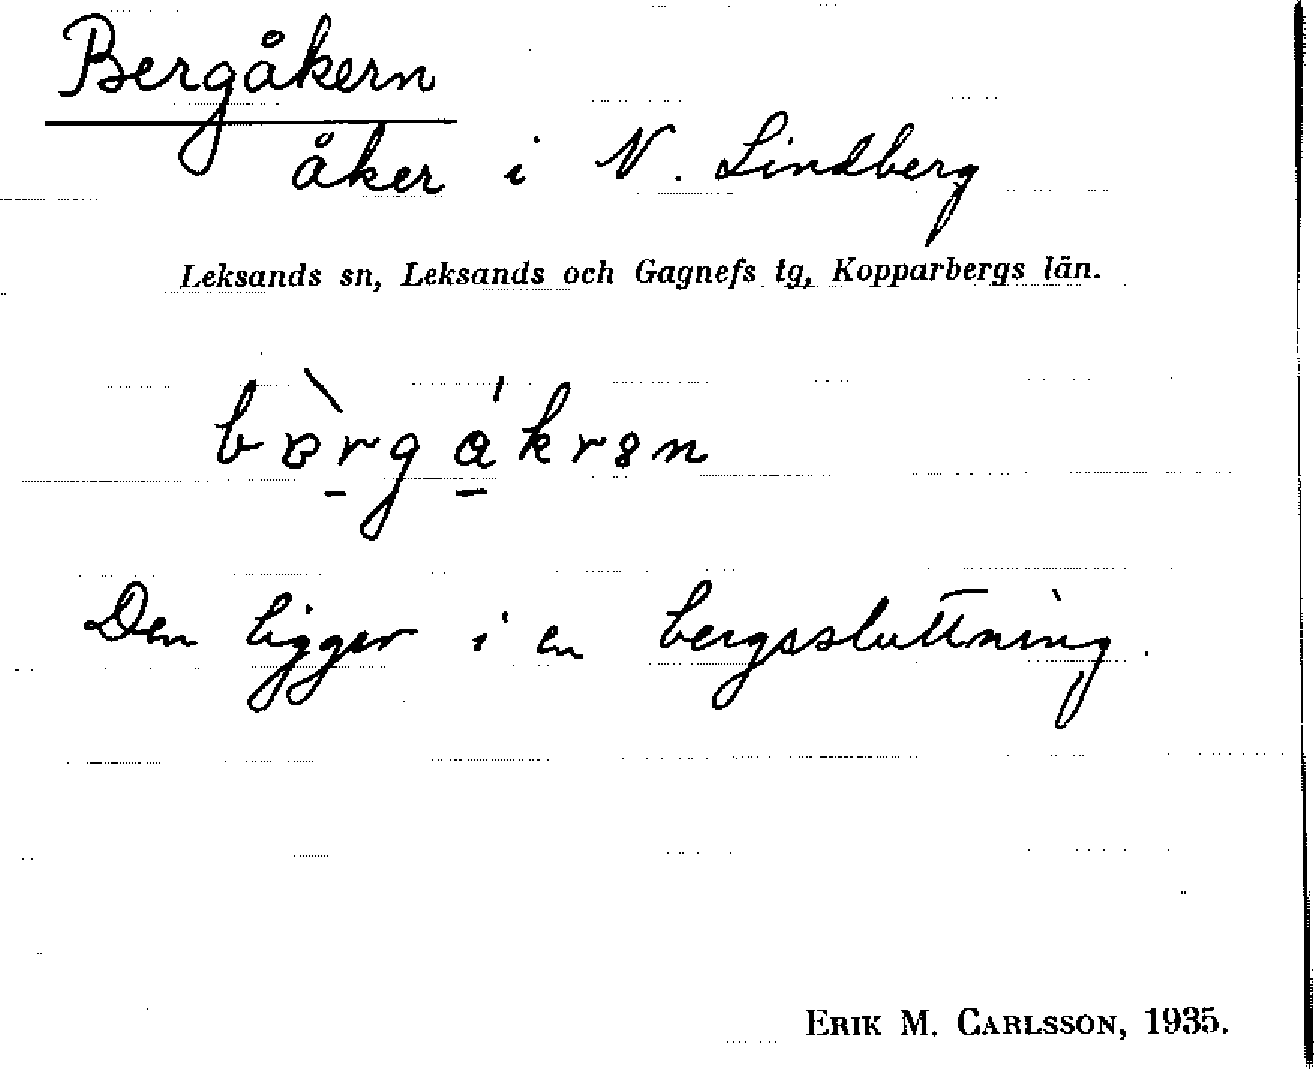 Bergåkern
åker i N. Lindberg
Leksands sn, Leksands och Gagnefs tg, Kopparbergs län.
Den ligger i en bergssluttning.
ERIK M. CARLSSON, 1935.